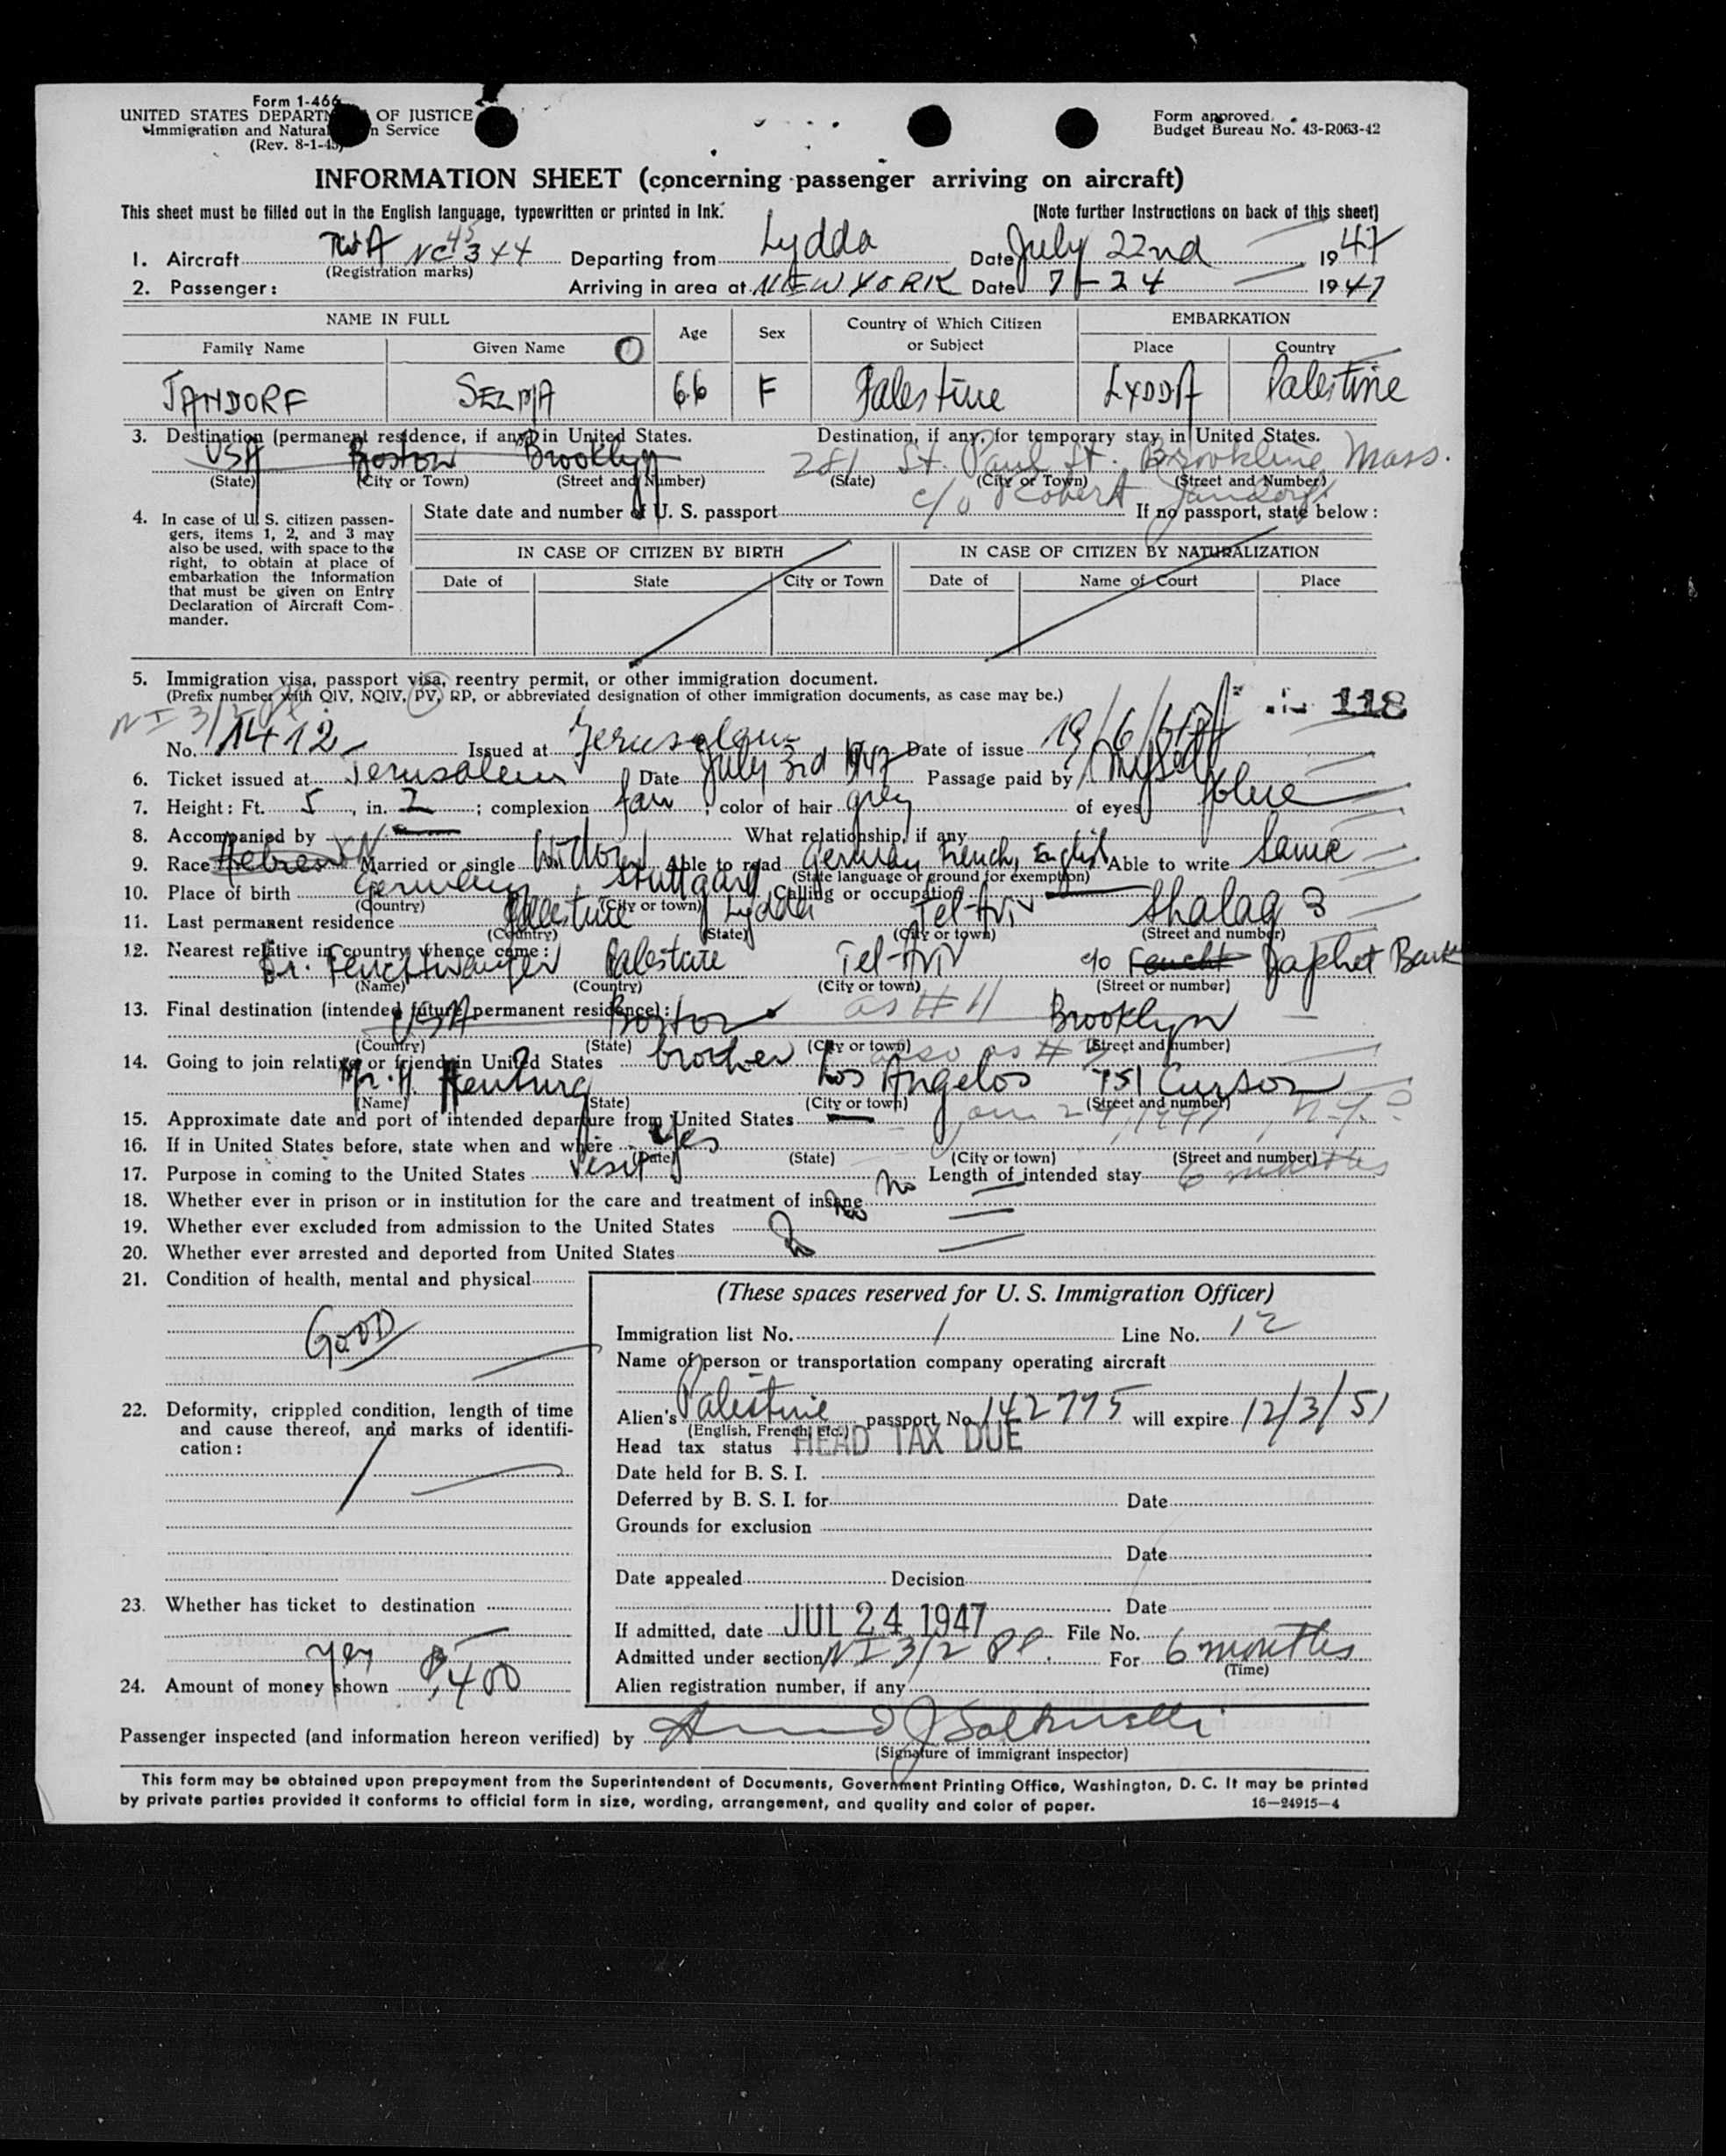 Form 1-466
UNITED STATES DEPARTM OF JUSTICE
Immigration and Natura n Service
(Rev. 8-1-45)
Form approved.
Budget Bureau No. 43-R063-42
INFORMATION SHEET (concerning passenger arriving on aircraft)
This sheet must be filled out in the English language, typewritten or printed in Ink. (Note further Instructions on back of this sheet)
1. Aircraft TWA NC 45344 Departing from Lydda Date July 22nd 1947
(Registration marks)
2. Passenger: Arriving in area at NEW YORK Date 7-24 1947
NAME IN FULL Age Sex Country of Which Citizen or Subject EMBARKATION
Family Name Given Name Place Country
JANDORF SELMA 66 F Palestine LYDDA Palestine
3. Destination (permanent residence, if any) in United States. Destination, if any, for temporary stay in United States.
USA Boston Brooklyn 281 St. Paul St. Brookline, Mass.
(State) (City or Town) (Street and Number) (State) (City or Town) (Street and Number)
c/o Robert Jandorf
4. In case of U. S. citizen passengers, items 1, 2, and 3 may also be used, with space to the right, to obtain at place of embarkation the information that must be given on Entry Declaration of Aircraft Commander.
State date and number of U. S. passport If no passport, state below:
IN CASE OF CITIZEN BY BIRTH IN CASE OF CITIZEN BY NATURALIZATION
Date of State City or Town Date of Name of Court Place
5. Immigration visa, passport visa, reentry permit, or other immigration document.
(Prefix number with QIV, NQIV, PV, RP, or abbreviated designation of other immigration documents, as case may be.)
118
NI 3/2 PP.
No. 1412 Issued at Jerusalem Date of issue 19/6/47
6. Ticket issued at Jerusalem Date July 3rd 1947 Passage paid by Myself
7. Height: Ft. 5, in. 2; complexion fair; color of hair grey of eyes blue
8. Accompanied by What relationship, if any
9. Race Hebrew Married or single Widow Able to read German, French, English Able to write Same
(State language or ground for exemption)
10. Place of birth Germany Stuttgard Calling or occupation
(Country) (City or town)
11. Last permanent residence Palestine Lydda Tel-Aviv Shalag 3
(Country) (State) (City or town) (Street and number)
12. Nearest relative in country whence came:
Dr. Feuchtwanger Palestine Tel-Aviv c/o Feucht Japhet Bank
(Name) (Country) (City or town) (Street or number)
13. Final destination (intended future permanent residence): as # 11
USA Boston Brooklyn
(Country) (State) (City or town) (Street and number)
14. Going to join relative or friend in United States brother also as # 3
Mr. H. Los Angelos 751 Curson
(Name) (State) (City or town) (Street and number)
15. Approximate date and port of intended departure from United States
16. If in United States before, state when and where Yes
(Date) (State) (City or town) (Street and number)
17. Purpose in coming to the United States Visit Length of intended stay 6 months
18. Whether ever in prison or in institution for the care and treatment of insane No
19. Whether ever excluded from admission to the United States No
20. Whether ever arrested and deported from United States
21. Condition of health, mental and physical
GOOD
22. Deformity, crippled condition, length of time and cause thereof, and marks of identification:
23. Whether has ticket to destination
Yes
24. Amount of money shown $400
(These spaces reserved for U. S. Immigration Officer)
Immigration list No. 1 Line No. 12
Name of person or transportation company operating aircraft
Alien's Palestine passport No. 142775 will expire 12/3/51
(English, French, etc.)
Head tax status HEAD TAX DUE
Date held for B. S. I.
Deferred by B. S. I. for Date
Grounds for exclusion
Date
Date appealed Decision
Date
If admitted, date JUL 24 1947 File No.
Admitted under section NI 3/2 PP. For 6 months
(Time)
Alien registration number, if any
Passenger inspected (and information hereon verified) by
(Signature of immigrant inspector)
This form may be obtained upon prepayment from the Superintendent of Documents, Government Printing Office, Washington, D. C. It may be printed
by private parties provided it conforms to official form in size, wording, arrangement, and quality and color of paper. 16—24915-4